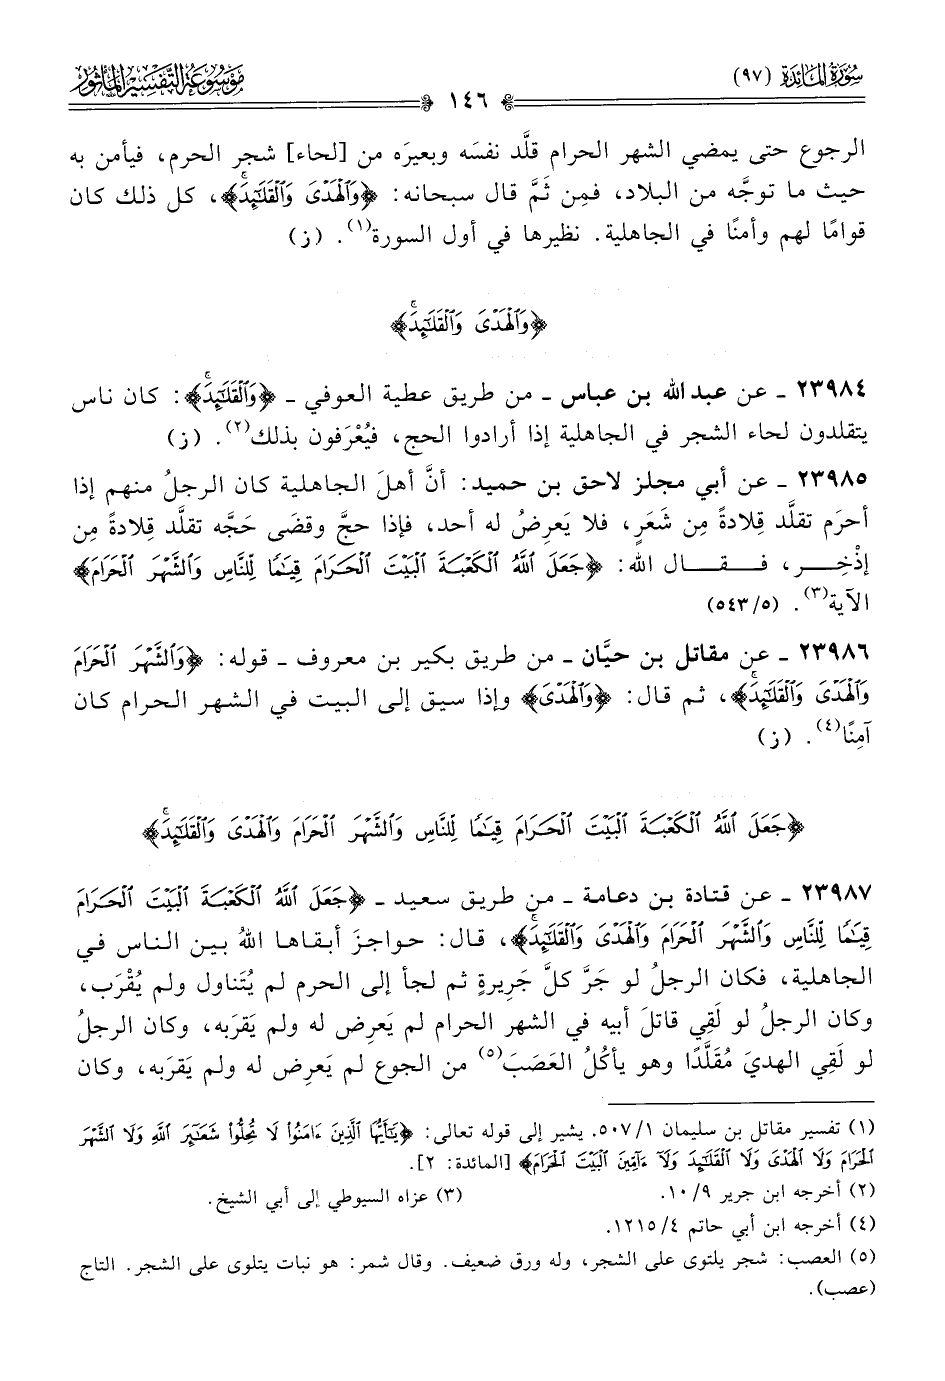 سُورَةُ المَائِدَةِ (٩٧)
١٤٦
مَوْسُوعَةُ التَّفْسِيْرِ المَأْثُورِ
الرجوع حتى يمضي الشهر الحرام قلَّد نفسَه وبعيرَه من [لحاء] شجر الحرم، فيأمن به
حيث ما توجَّه من البلاد، فمِن ثَمَّ قال سبحانه: ﴿وَٱلۡهَدۡىَ وَٱلۡقَلَٰٓئِدَۚ﴾، كل ذلك كان
قوامًا لهم وأمنًا في الجاهلية. نظيرها في أول السورة(١). (ز)
﴿وَٱلۡهَدۡىَ وَٱلۡقَلَٰٓئِدَۚ﴾
٢٣٩٨٤ ـ عن عبد الله بن عباس ـ من طريق عطية العوفي ـ ﴿وَٱلۡقَلَٰٓئِدَۚ﴾: كان ناس
يتقلدون لحاء الشجر في الجاهلية إذا أرادوا الحج، فيُعْرَفون بذلك(٢). (ز)
٢٣٩٨٥ ـ عن أبي مجلز لاحق بن حميد: أنَّ أهلَ الجاهلية كان الرجلُ منهم إذا
أحرَم تقلَّد قِلادةً مِن شَعَرٍ، فلا يَعرِضُ له أحد، فإذا حجَّ وقضَى حَجَّه تقلَّد قِلادةً مِن
إذْخِر، فقال الله: ﴿جَعَلَ ٱللَّهُ ٱلۡكَعۡبَةَ ٱلۡبَيۡتَ ٱلۡحَرَامَ قِيَٰمٗا لِّلنَّاسِ وَٱلشَّهۡرَ ٱلۡحَرَامَ﴾
الآية(٣). (٥/ ٥٤٣)
٢٣٩٨٦ ـ عن مقاتل بن حيَّان ـ من طريق بكير بن معروف ـ قوله: ﴿وَٱلشَّهۡرَ ٱلۡحَرَامَ
وَٱلۡهَدۡىَ وَٱلۡقَلَٰٓئِدَۚ﴾، ثم قال: ﴿وَٱلۡهَدۡىَ﴾ وإذا سيق إلى البيت في الشهر الحرام كان
آمِنًا(٤). (ز)
﴿جَعَلَ ٱللَّهُ ٱلۡكَعۡبَةَ ٱلۡبَيۡتَ ٱلۡحَرَامَ قِيَٰمٗا لِّلنَّاسِ وَٱلشَّهۡرَ ٱلۡحَرَامَ وَٱلۡهَدۡىَ وَٱلۡقَلَٰٓئِدَۚ﴾
٢٣٩٨٧ ـ عن قتادة بن دعامة ـ من طريق سعيد ـ ﴿جَعَلَ ٱللَّهُ ٱلۡكَعۡبَةَ ٱلۡبَيۡتَ ٱلۡحَرَامَ
قِيَٰمٗا لِّلنَّاسِ وَٱلشَّهۡرَ ٱلۡحَرَامَ وَٱلۡهَدۡىَ وَٱلۡقَلَٰٓئِدَۚ﴾، قال: حواجزَ أبقاها اللهُ بين الناس في
الجاهلية، فكان الرجلُ لو جَرَّ كلَّ جَرِيرةٍ ثم لجأ إلى الحرم لم يُتَناول ولم يُقْرَب،
وكان الرجلُ لو لَقِي قاتلَ أبيه في الشهر الحرام لم يَعرِض له ولم يَقرَبه، وكان الرجلُ
لو لَقِي الهديَ مُقَلَّدًا وهو يأكُلُ العَصَبَ(٥) من الجوع لم يَعرِض له ولم يَقرَبه، وكان
(١) تفسير مقاتل بن سليمان ٥٠٧/١. يشير إلى قوله تعالى: ﴿يَٰٓأَيُّهَا ٱلَّذِينَ ءَامَنُواْ لَا تُحِلُّواْ شَعَٰٓئِرَ ٱللَّهِ وَلَا ٱلشَّهۡرَ
ٱلۡحَرَامَ وَلَا ٱلۡهَدۡىَ وَلَا ٱلۡقَلَٰٓئِدَ وَلَآ ءَآمِّينَ ٱلۡبَيۡتَ ٱلۡحَرَامَ﴾ [المائدة: ٢].
(٢) أخرجه ابن جرير ٩/ ١٠. (٣) عزاه السيوطي إلى أبي الشيخ.
(٤) أخرجه ابن أبي حاتم ٤/ ١٢١٥.
(٥) العصب: شجر يلتوى على الشجر، وله ورق ضعيف. وقال شمر: هو نبات يتلوى على الشجر. التاج
(عصب).